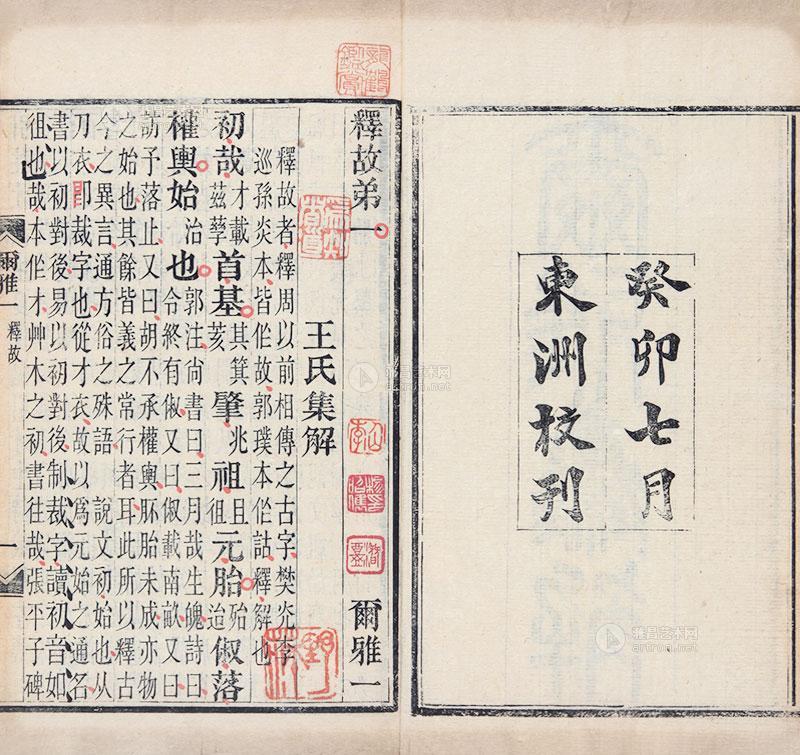 癸卯七月
東洲校刋
釋故弟一 爾雅一
王氏集解
釋故者釋周以前相傳之古字樊光李
巡孫炎本皆作故郭璞本作詁釋解也
初哉才載茲孽首基其箕荄肇兆祖且徂元胎殆迨俶落
權輿始治也郭注尚書曰三月哉生魄詩曰令終有俶又曰俶載南畝又曰
訪予落止又曰胡不承權輿胚胎未成亦物
之始也其餘皆義之常行者耳此所以釋古
今之異言通方俗之殊語 說文初始也从
刀衣卽裁字也從才衣故以爲元始之通名
書以初對後易以初對後制裁字讀初音如
徂也哉本作才艸木之初書往哉張平子碑
爾雅一 釋故 一
雅昌艺术网
artron.net